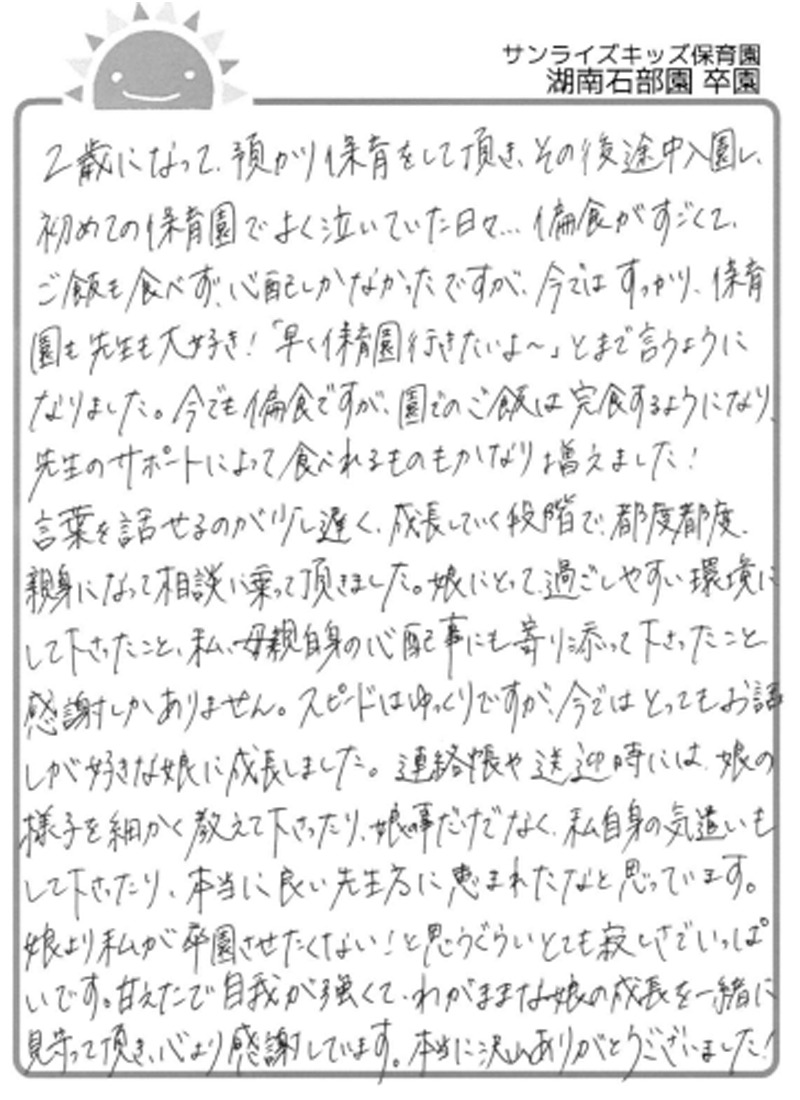 サンライズキッズ保育園
湖南石部園 卒園
2歳になって、預かり保育をして頂き、その後途中入園し、
初めての保育園でよく泣いていた日々… 偏食がすごくて、
ご飯も食べず、心配しかなかったですが、今ではすっかり、保育
園も先生も大好き!「早く保育園行きたいよ〜」とまで言うように
なりました。今でも偏食ですが、園でのご飯は完食するようになり、
先生のサポートによって食べれるものもかなり増えました!
言葉を話せるのが少し遅く、成長していく段階で、都度都度、
親身になって相談に乗って頂きました。娘にとって、過ごしやすい環境に
して下さったこと、私、母親自身の心配事にも寄り添って下さったこと、
感謝しかありません。スピードはゆっくりですが、今ではとってもお話
しが好きな娘に成長しました。連絡帳や送迎時には、娘の
様子を細かく教えて下さったり、娘の事だけでなく、私自身の気遣いも
して下さったり、本当に良い先生方に恵まれたなと思っています。
娘より私が卒園させたくない!と思うぐらいとても寂しさでいっぱ
いです。甘えたで自我が強くて、わがままな娘の成長を一緒に
見守って頂き、心より感謝しています。本当に沢山ありがとうございました!